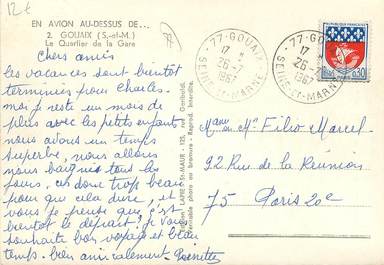 12€
EN AVION AU-DESSUS DE...
2. GOUAIX (S.-et-M.)
Le Quartier de la Gare
Chers amis
les vacances sont bientôt
terminées pour Charles.
moi je reste un mois de
plus avec les petits enfants
nous avons un temps
superbe, nous allons
nous baigner tous les
jours, donc trop beau
pour que cela dure, et
vous je pense que c'est
bientôt le départ. Je vous
souhaite bon voyage et beau
temps. bien amicalement.
LAPIE, St-MAUR - 123, rue Garibaldi
Véritable photo au bromure - Reprod. interdite.
77-GOUAIX
17 H
26-7
1967
SEINE-ET-MARNE
77-GOUAIX
17 H
26-7
1967
SEINE-ET-MARNE
REPUBLIQUE FRANÇAISE
0,30
et Mr Marcel
92 Rue de la Réunion
75 Paris 20e